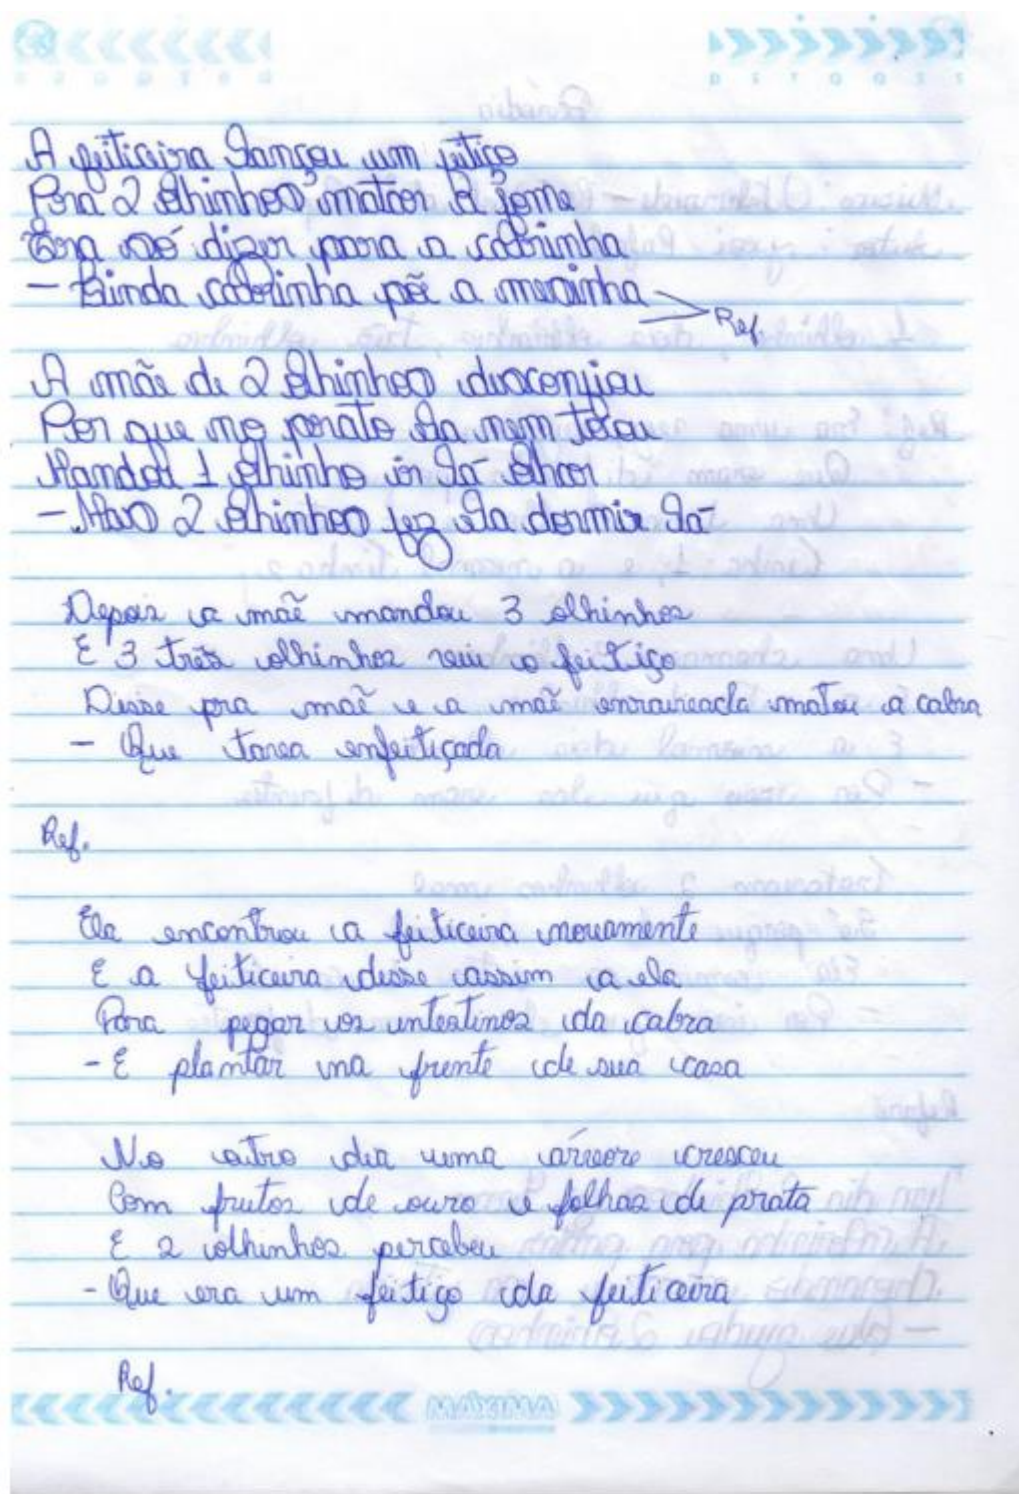 A feiticeira lançou um fetiço
Para 2 olhinhos matar a fome
Era só dizer para a cabrinha
- Linda cabrinha põe a mesinha Ref.
A mãe de 2 olhinhos desconfiou
Por que no prato ela nem tocou
Mandou 1 olhinho ir lá olhar
- Mas 2 olhinhos fez ela dormir lá
Depois a mãe mandou 3 olhinhos
E 3 três olhinhos viu o feitiço
Disse pra mãe e a mãe enraiveada matou a cabra
- Que tava enfeitiçada
Ref.
Ela encontrou a feiticeira novamente
E a feiticeira disse assim a ela
Para pegar os intestinos da cabra
- E plantar na frente de sua casa
No outro dia uma árvore cresceu
Com frutos de ouro e folhas de prata
E 2 olhinhos percebeu
- Que era um feitiço da feiticeira
Ref.
MAXIMA